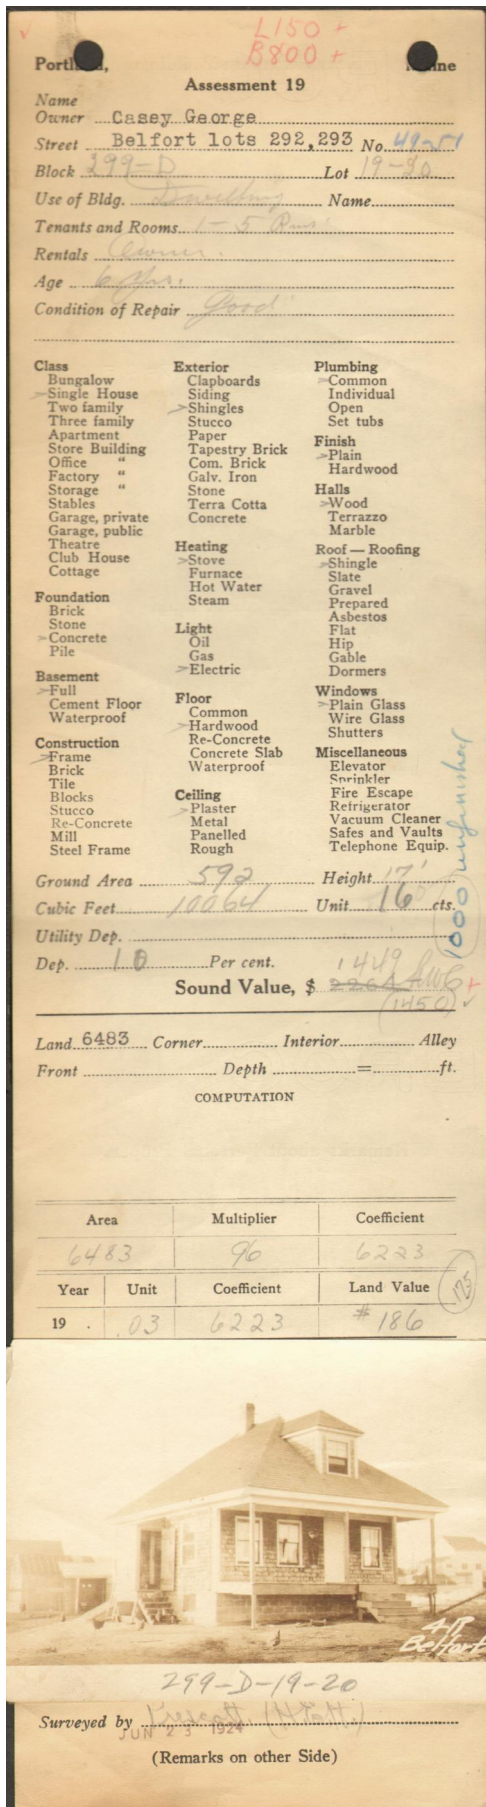 L150 +
B800 +
Portland, Maine
Assessment 19
Name
Owner Casey George
Street Belfort lots 292,293 No. 49-51
Block 299-D Lot 19-20
Use of Bldg. Dwelling Name
Tenants and Rooms 1-5 Rms.
Rentals Owner.
Age 6 Yrs.
Condition of Repair Good
Class
Bungalow
Single House
Two family
Three family
Apartment
Store Building
Office "
Factory "
Storage "
Stables
Garage, private
Garage, public
Theatre
Club House
Cottage
Foundation
Brick
Stone
Concrete
Pile
Basement
Full
Cement Floor
Waterproof
Construction
Frame
Brick
Tile
Blocks
Stucco
Re-Concrete
Mill
Steel Frame
Exterior
Clapboards
Siding
Shingles
Stucco
Paper
Tapestry Brick
Com. Brick
Galv. Iron
Stone
Terra Cotta
Concrete
Heating
Stove
Furnace
Hot Water
Steam
Light
Oil
Gas
Electric
Floor
Common
Hardwood
Re-Concrete
Concrete Slab
Waterproof
Ceiling
Plaster
Metal
Panelled
Rough
Plumbing
Common
Individual
Open
Set tubs
Finish
Plain
Hardwood
Halls
Wood
Terrazzo
Marble
Roof — Roofing
Shingle
Slate
Gravel
Prepared
Asbestos
Flat
Hip
Gable
Dormers
Windows
Plain Glass
Wire Glass
Shutters
Miscellaneous
Elevator
Sprinkler
Fire Escape
Refrigerator
Vacuum Cleaner
Safes and Vaults
Telephone Equip.
1000 unfinished
Ground Area 592 Height 17'
Cubic Feet 10064 Unit 16 cts.
Utility Dep.
Dep. 10 Per cent.
1449
Sound Value, $ +
(1450)
Land 6483 Corner Interior Alley
Front Depth = ft.
COMPUTATION
Area Multiplier Coefficient
6483 96 6223
Year Unit Coefficient Land Value
175
19 . .03 6223 # 186
49
Belfort
299-D-19-20
Surveyed by
JUN 23 1924
(Remarks on other Side)